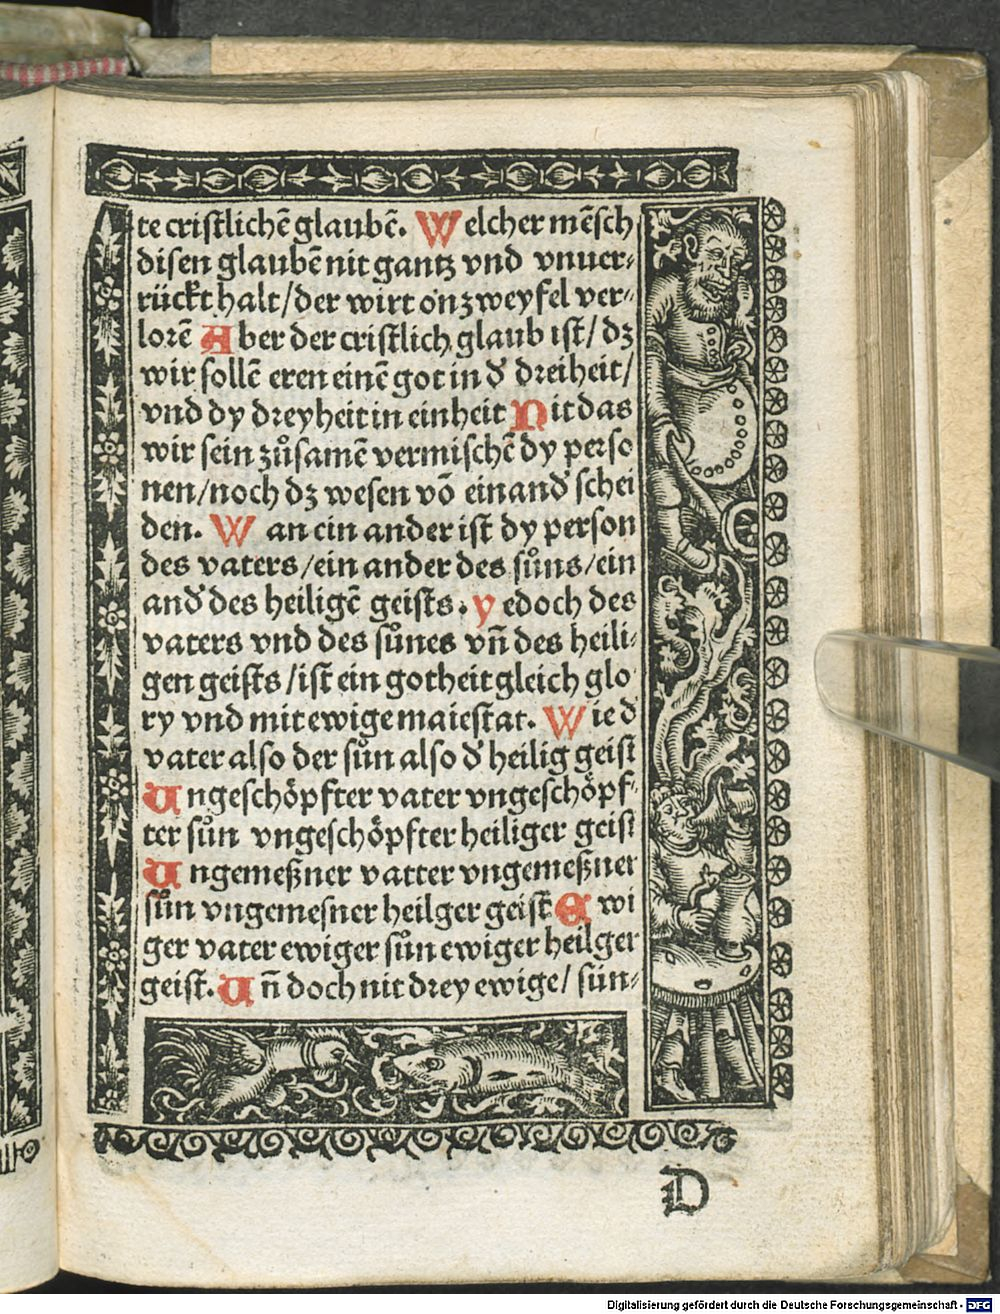 te cristlichē glaubē. Welcher mēsch
disen glaubē nit gantz vnd vnuer⸗
rückt halt/der wirt on zweyfel ver⸗
lorē Aber der cristlich glaub ist/dz
wir sollē eren einē got in d̕ dreiheit/
vnd dy dreyheit in einheit Nit das
wir sein zůsamē vermischē dy perso
nen/noch dz wesen vō einand̕ schei
den. Wan ein ander ist dy person
des vaters/ein ander des sůns/ein
and̕ des heiligē geists. yedoch des
vaters vnd des sůnes vn̄ des heili⸗
gen geists/ist ein gotheit gleich glo
ry vnd mit ewige maiestat. Wie d̕
vater also der sůn also d̕ heilig geist
Ungeschöpfter vater vngeschöpf⸗
ter sůn vngeschöpfter heiliger geist
Ungemeßner vatter vngemeßner
sůn vngemesner heilger geist Ewi
ger vater ewiger sůn ewiger heilger
geist. Un̄ doch nit drey ewige/ sün⸗
D
Digitalisierung gefördert durch die Deutsche Forschungsgemeinschaft - DFG